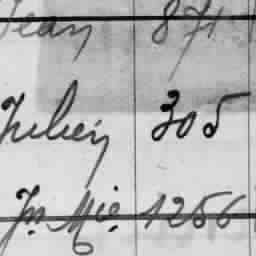 Jean 871
Julien 305
Jn. Mie. 1256